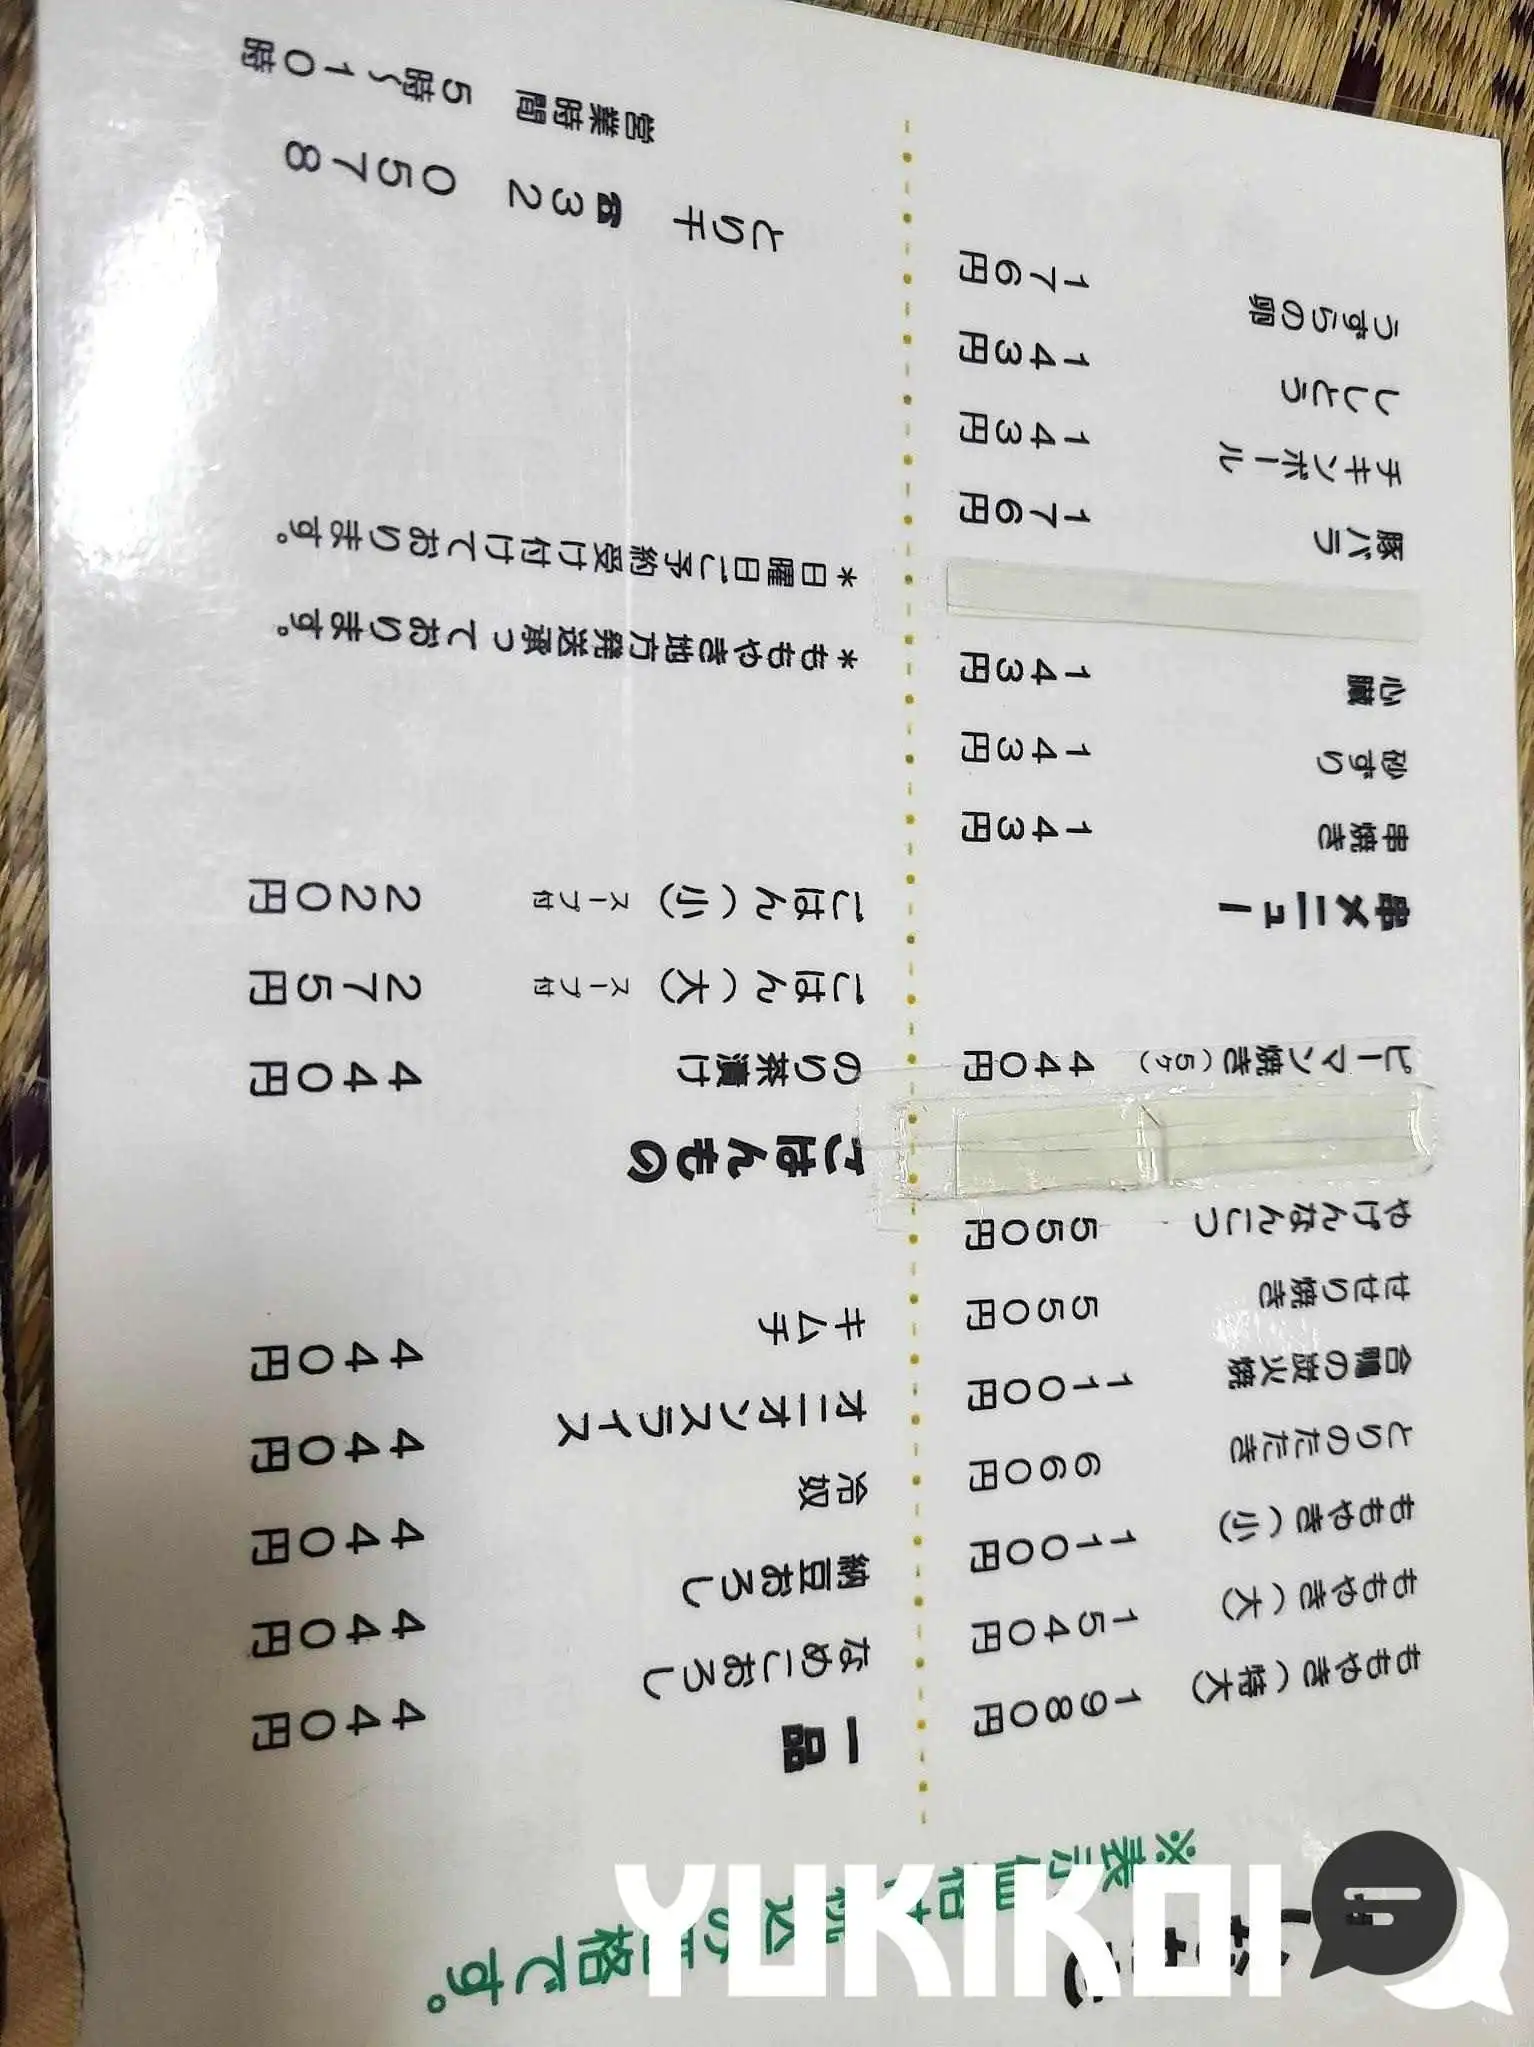 おしながき
※表示価格は税込の価格です。
ももやき(特大) 1980円
ももやき(大) 1540円
ももやき(小) 1100円
とりのたたき 660円
合鴨の炭火焼 1100円
せせり焼き 550円
やげんなんこつ 550円
ピーマン焼き(5ヶ) 440円
串メニュー
串焼き 143円
砂ずり 143円
心臓 143円
豚バラ 176円
チキンボール 143円
ししとう 143円
うずらの卵 176円
一品
なめこおろし 440円
納豆おろし 440円
冷奴 440円
オニオンスライス 440円
キムチ 440円
ごはんもの
のり茶漬け 440円
ごはん(大) スープ付 275円
ごはん(小) スープ付 220円
*ももやき地方発送承っております。
*日曜日ご予約受け付けております。
とり千 ☎32 0578
営業時間 5時~10時
YUKIKOI